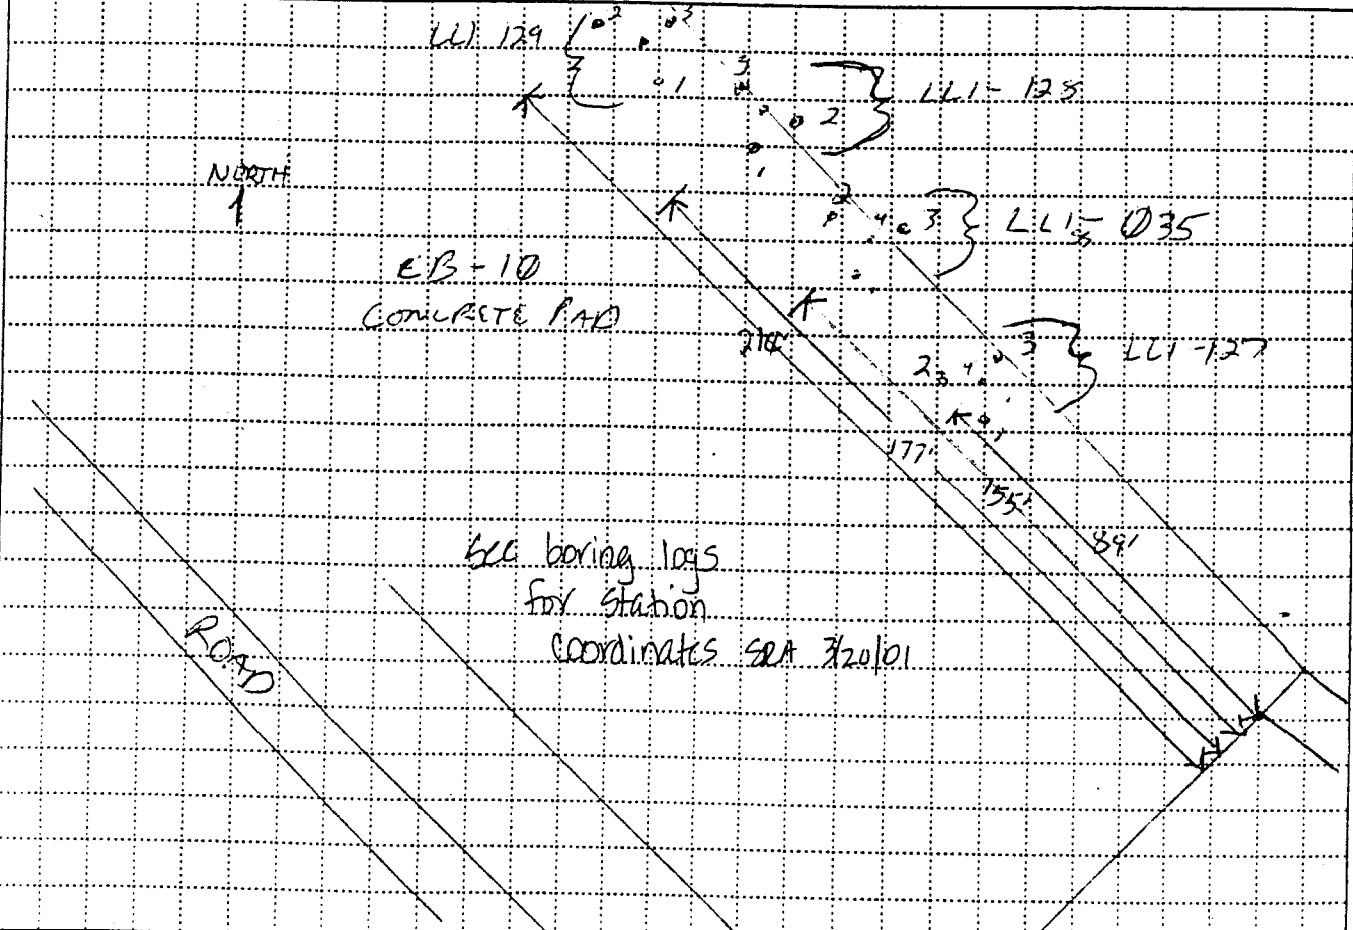 LL1 129
2
3
1
3
2
1
LL1-128
NORTH
2
4
3
LL1ss-Ø35
CB-1Ø
CONCRETE PAD
2
4
3
LL1-127
1
177'
155'
89'
See boring logs
for station
coordinates SRA 3/20/01
ROAD